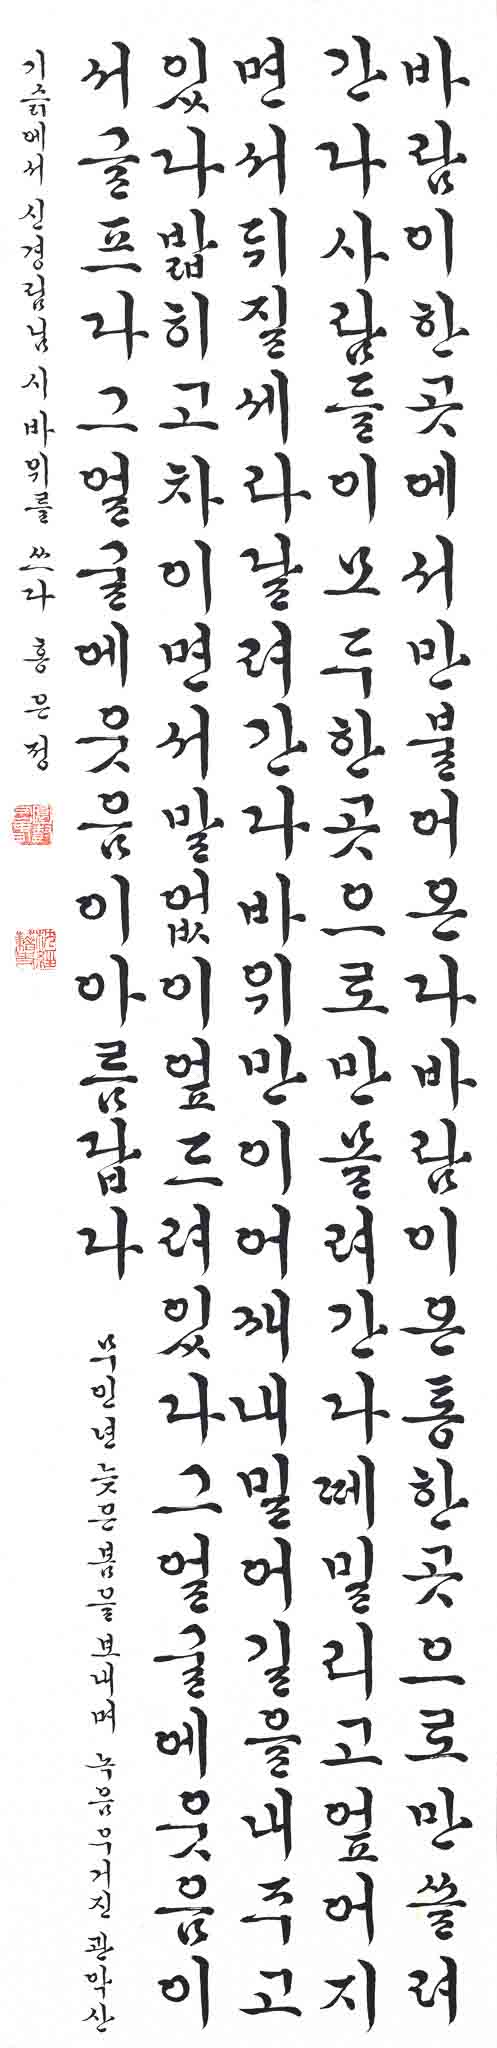 바람이한곳에서만불어온다바람이온통한곳으로만쓸려
간다사람들이모두한곳으로만몰려간다떼밀리고엎어지
면서뒤질세라달려간다바위만이어깨내밀어길을내주고
있다밟히고차이면서말없이엎드려있다그얼굴에웃음이
서글프다그얼굴에웃음이아름답다
무인년 늦은봄을 보내며 녹음우거진 관악산
기슭에서 신경림님 시 바위를 쓰다 홍은정